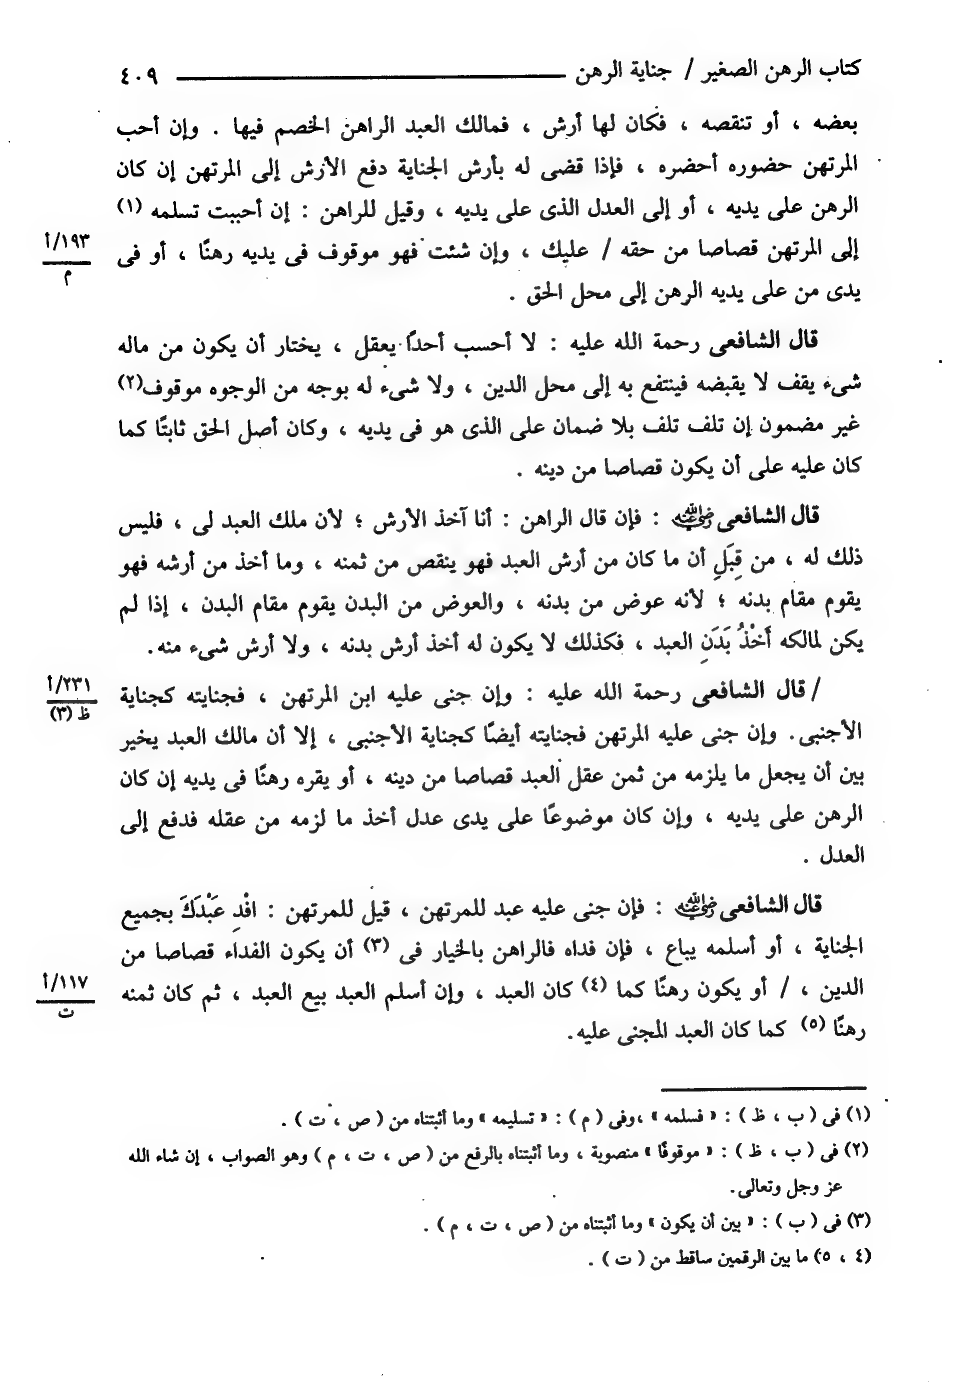 كتاب الرهن الصغير / جناية الرهن ـــــــــ ٤٠٩
بعضه ، أو تنقصه ، فكان لها أرش ، فمالك العبد الراهن الخصم فيها . وإن أحب
المرتهن حضوره أحضره ، فإذا قضى له بأرش الجناية دفع الأرش إلى المرتهن إن كان
الرهن على يديه ، أو إلى العدل الذى على يديه ، وقيل للراهن : إن أحببت تسلمه (١)
إلى المرتهن قصاصا من حقه / عليك ، وإن شئت فهو موقوف فى يديه رهنًا ، أو فى
١٩٣/أ
م
يدى من على يديه الرهن إلى محل الحق .
قال الشافعى رحمة الله عليه : لا أحسب أحدًا يعقل ، يختار أن يكون من ماله
شىء يقف لا يقبضه فينتفع به إلى محل الدين ، ولا شىء له بوجه من الوجوه موقوف(٢)
غير مضمون إن تلف تلف بلا ضمان على الذى هو فى يديه ، وكان أصل الحق ثابتًا كما
كان عليه على أن يكون قصاصا من دينه .
قال الشافعى رضي الله عنه : فإن قال الراهن : أنا آخذ الأرش ؛ لأن ملك العبد لى ، فليس
ذلك له ، من قِبَلِ أن ما كان من أرش العبد فهو ينقص من ثمنه ، وما أخذ من أرشه فهو
يقوم مقام بدنه ؛ لأنه عوض من بدنه ، والعوض من البدن يقوم مقام البدن ، إذا لم
يكن لمالكه أَخْذُ بَدَنِ العبد ، فكذلك لا يكون له أخذ أرش بدنه ، ولا أرش شىء منه.
/ قال الشافعى رحمة الله عليه : وإن جنى عليه ابن المرتهن ، فجنايته كجناية
٢٣١/أ
ظ (٣)
الأجنبى. وإن جنى عليه المرتهن فجنايته أيضًا كجناية الأجنبى ، إلا أن مالك العبد يخير
بين أن يجعل ما يلزمه من ثمن عقل العبد قصاصا من دينه ، أو يقره رهنًا فى يديه إن كان
الرهن على يديه ، وإن كان موضوعًا على يدى عدل أخذ ما لزمه من عقله فدفع إلى
العدل .
قال الشافعى رضي الله عنه : فإن جنى عليه عبد للمرتهن ، قيل للمرتهن : افْدِ عَبْدَكَ بجميع
الجناية ، أو أسلمه يباع ، فإن فداه فالراهن بالخيار فى (٣) أن يكون الفداء قصاصا من
الدين ، / أو يكون رهنًا كما (٤) كان العبد ، وإن أسلم العبد بيع العبد ، ثم كان ثمنه
١١٧/أ
ت
رهنًا (٥) كما كان العبد المجنى عليه.
(١) فى ( ب ، ظ ) : « فسلمه » ،وفى ( م ) : « تسليمه » وما أثبتناه من ( ص ، ت ) .
(٢) فى ( ب ، ظ ) : « موقوفًا » منصوبة ، وما أثبتناه بالرفع من ( ص ، ت ، م ) وهو الصواب ، إن شاء الله
عز وجل وتعالى.
(٣) فى ( ب ) : « بين أن يكون » وما أثبتناه من ( ص ، ت ، م ) .
(٤ ، ٥) ما بين الرقمين ساقط من ( ت ) .